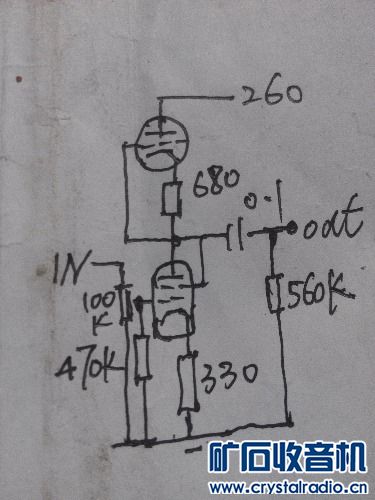 260
680
0.1
out
IN
100
K
560K
470K
330
矿石收音机
www.crystalradio.cn